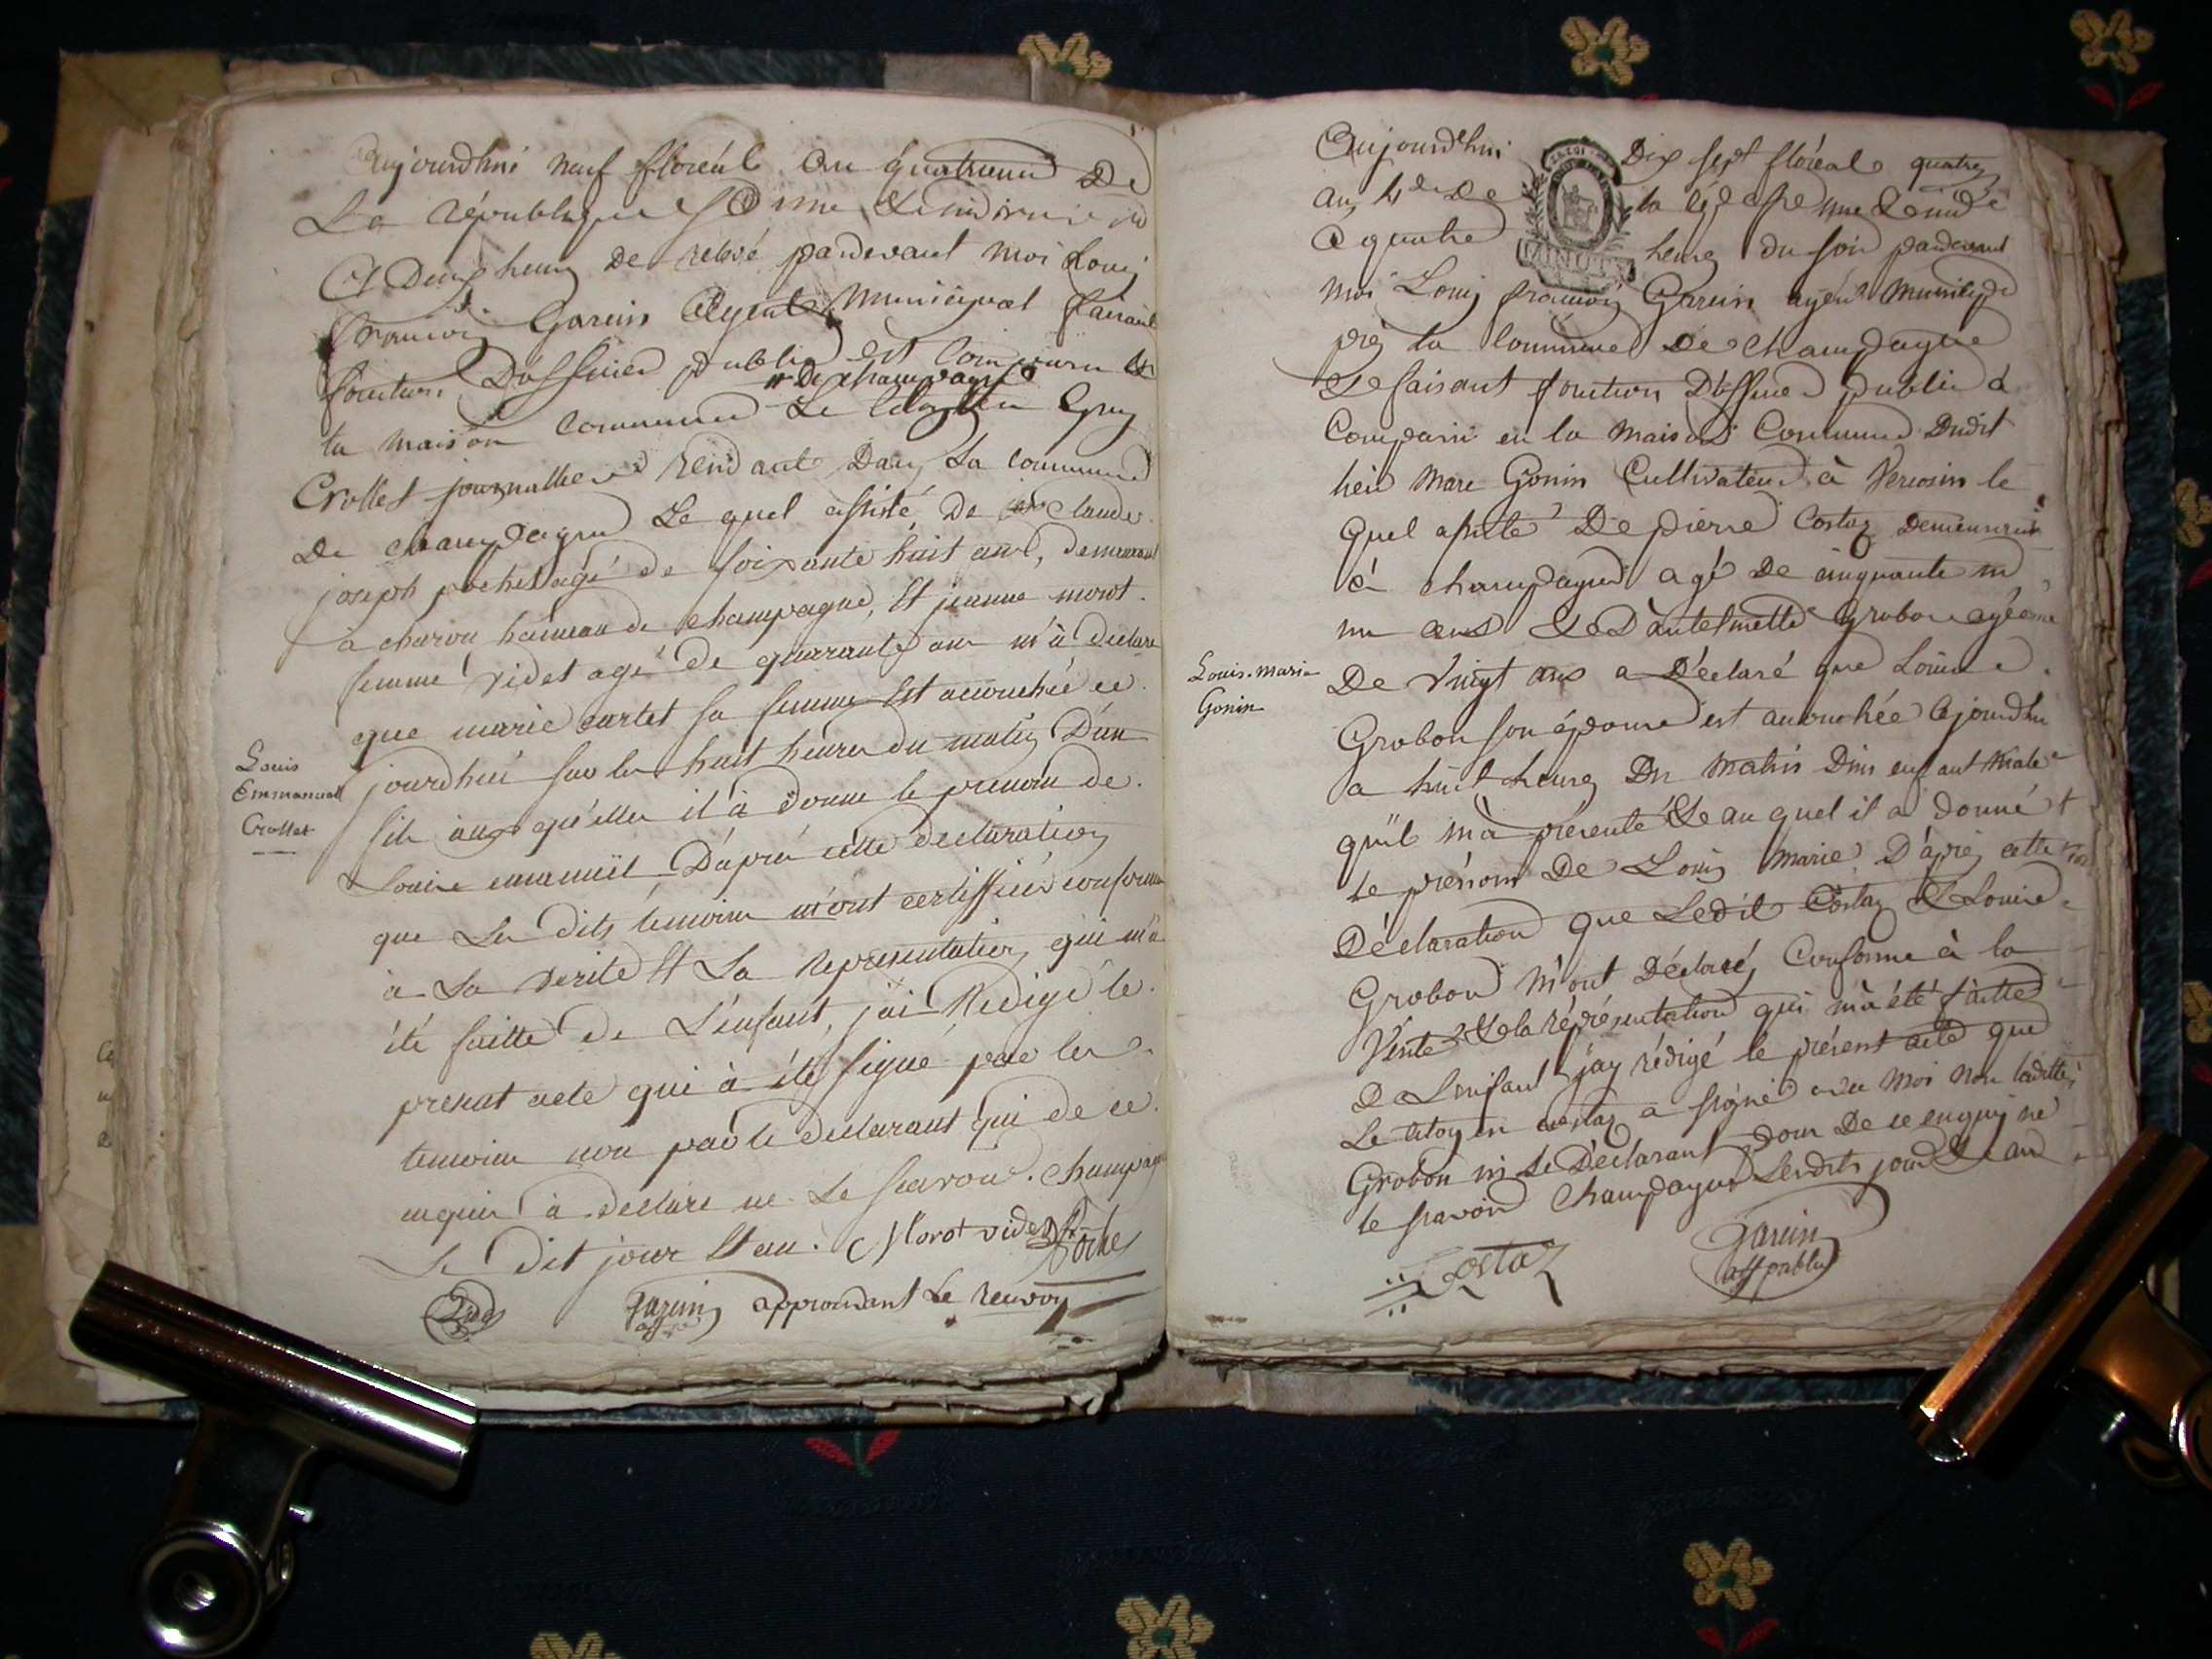 aujourdhui neuf floréal an quatrieme De
La république une
et Deux heures De relevé pardevant moi Louis
francois Garcin Agent Municipal faisant
fonction D'officier public est
la maison Commune # De champagne Le Citoyen Guy
Crollet journallier dans La commune
De champagne Le quel assisté De Claude
joseph pochet agé de soixante huit ans, demeurant
à charon hameau de champagne, Et jeanne morot
femme videt agé de quarante ans m'à declare
que marie cartet sa femme Est accouchée ce
Louis
Emmanuel
Crollet
jourdhui sur les huit heures du matin D'un
fils auqu'elle il à donne le prenom de
Louis emanuël D'après cette declaration
que Les dits temoins m'ont certiffiée conforme
à La verité Et La representation qui m'a
été faitte De L'enfant, j'ai Redigé le
presant acte qui à été signé par les
temoins non par le declarant qui de ce
enquis à declare ne Le scavoir. champagne
Le Dit jour Et an. Morot videt Pochet
Garcin approuvant Le renvoy
Aujourd'hui Dix sept floréal quatre
an 4e De la rép. fse une &
A quatre heures du soir pardevant
MINUTE
moi Louis francois Garcin agent Municipal
près la Commune De Champagne
& faisant fonction D'officier public à
Comparu en la maison Commune Dudit
lieu Marc Gonin Cultivateur à Vercosin le
quel assisté De pierre Costaz Demeurant
à champagne agé De cinquante
un ans & D'antelmette Grobon agée
Louis-marie
Gonin
De Vingt ans a Déclaré que Louise
Grobon son épouse est accouchée Cejourdhui
a huit heures Du matin D'un enfant Male
qu'il m'à présenté & auquel il a donné
le prénom De Louis Marie D'après cette
Déclaration que Ledit Costaz & Louise
Grobon m'ont Déclaré Conforme à la
Vérité & la représentation qui m'à été faitte
De L'enfant j'ay rédigé le présent acte que
Le citoyen Costaz a signé avec moi non laditte
Grobon ni Le Déclarant pour De ce enquis ne
le scavoir Champagne Lesdits jour & an
Costaz
Garcin
off public